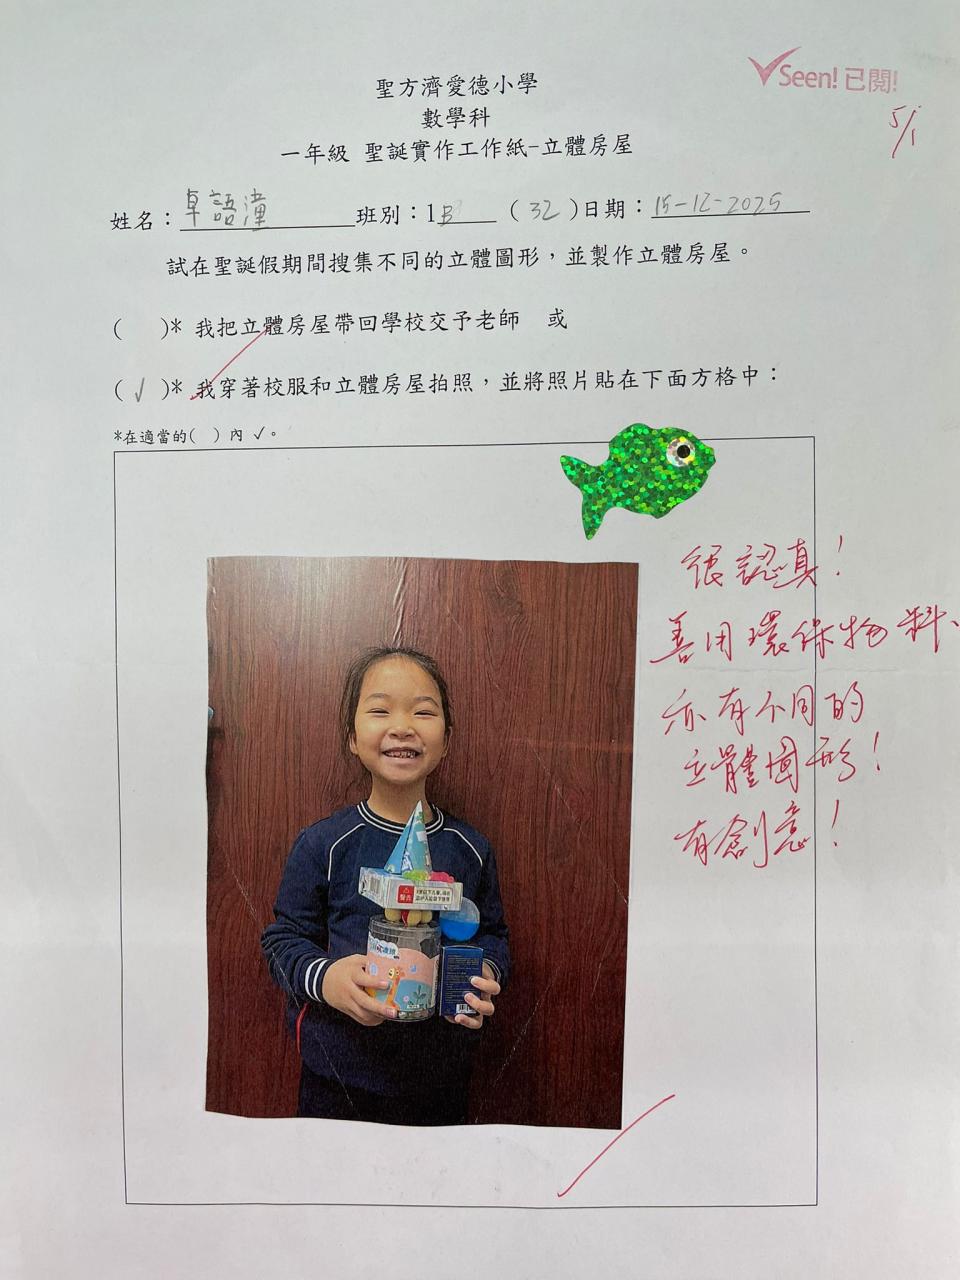 Seen! 已閱!
5/1
聖方濟愛德小學
數學科
一年級 聖誕實作工作紙-立體房屋
姓名：卓語潼 班別：1B (32) 日期：15-12-2025
試在聖誕假期間搜集不同的立體圖形，並製作立體房屋。
( )* 我把立體房屋帶回學校交予老師 或
(✓)* 我穿著校服和立體房屋拍照，並將照片貼在下面方格中：
*在適當的( ) 內 ✓。
很認真！
善用環保物料、
亦有不同的
立體圖形！
有創意！
警告